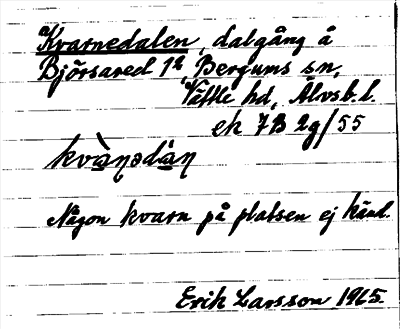 Kvarnedalen, dalgång å
Björsared 1², Bergums sn,
Vättle hd, Älvsb. l.
ek 7B 2g/55
kvànədàn
Någon kvarn på platsen ej känd.
Erik Larsson 1965.